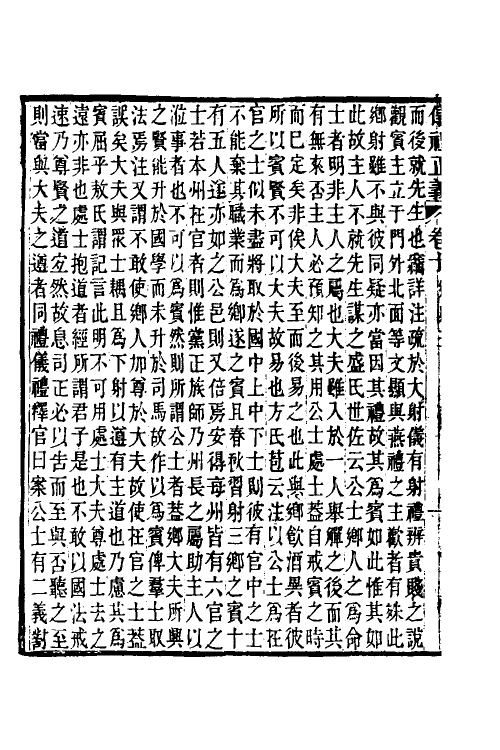 儀禮正義 卷十
而後就先生也窮詳注疏於大射儀有射禮辨貴賤之說
觀賓主立于門外北面等文顯與燕禮之主歡者有殊此
鄉射雖不與彼同疑亦當因其禮故其爲賓如此惟其如
此故主人不就先生謀之盛氏世佐云公士鄉人之爲命
士者明非主人之屬也大夫雖入於一人舉觶之後而其
有無來否主人必預知之其用公士處士蓋自戒賓之時
而巳定矣非俟大夫至而後易之也此與鄉飮酒異者彼
所以賓賢不可以大夫故易也方氏苞云注以公士爲在
官之士似未盡將取於國中上中下士則彼有官中之士
不能棄其職業而爲鄉遂之賓且春秋習射三鄉之賓十
有五人遂亦如之公邑則又倍焉安得每州皆有六官之
士若本州在官者則惟黨正族師乃州長之屬助主人以
涖事者也不可以爲賓然則所謂公士者蓋鄉大夫所興
之賢能升於國學而未升於司馬故作以爲賓俾羣士取
法焉注又謂不敢使鄉人加尊於大夫故使在官之士益
誤矣大夫與衆士耦且爲下射以遵有主道也乃慮其爲
賓屈乎敖氏謂記言此明不可用處士大夫尊處士去之
遠亦非也處士抱道者經所謂君子是也不敢以國法戒
速乃尊賢之道宜然故息司正必以告而至與否聽之至
則當與大夫之遵者同禮儀禮釋官曰案公士有二義對